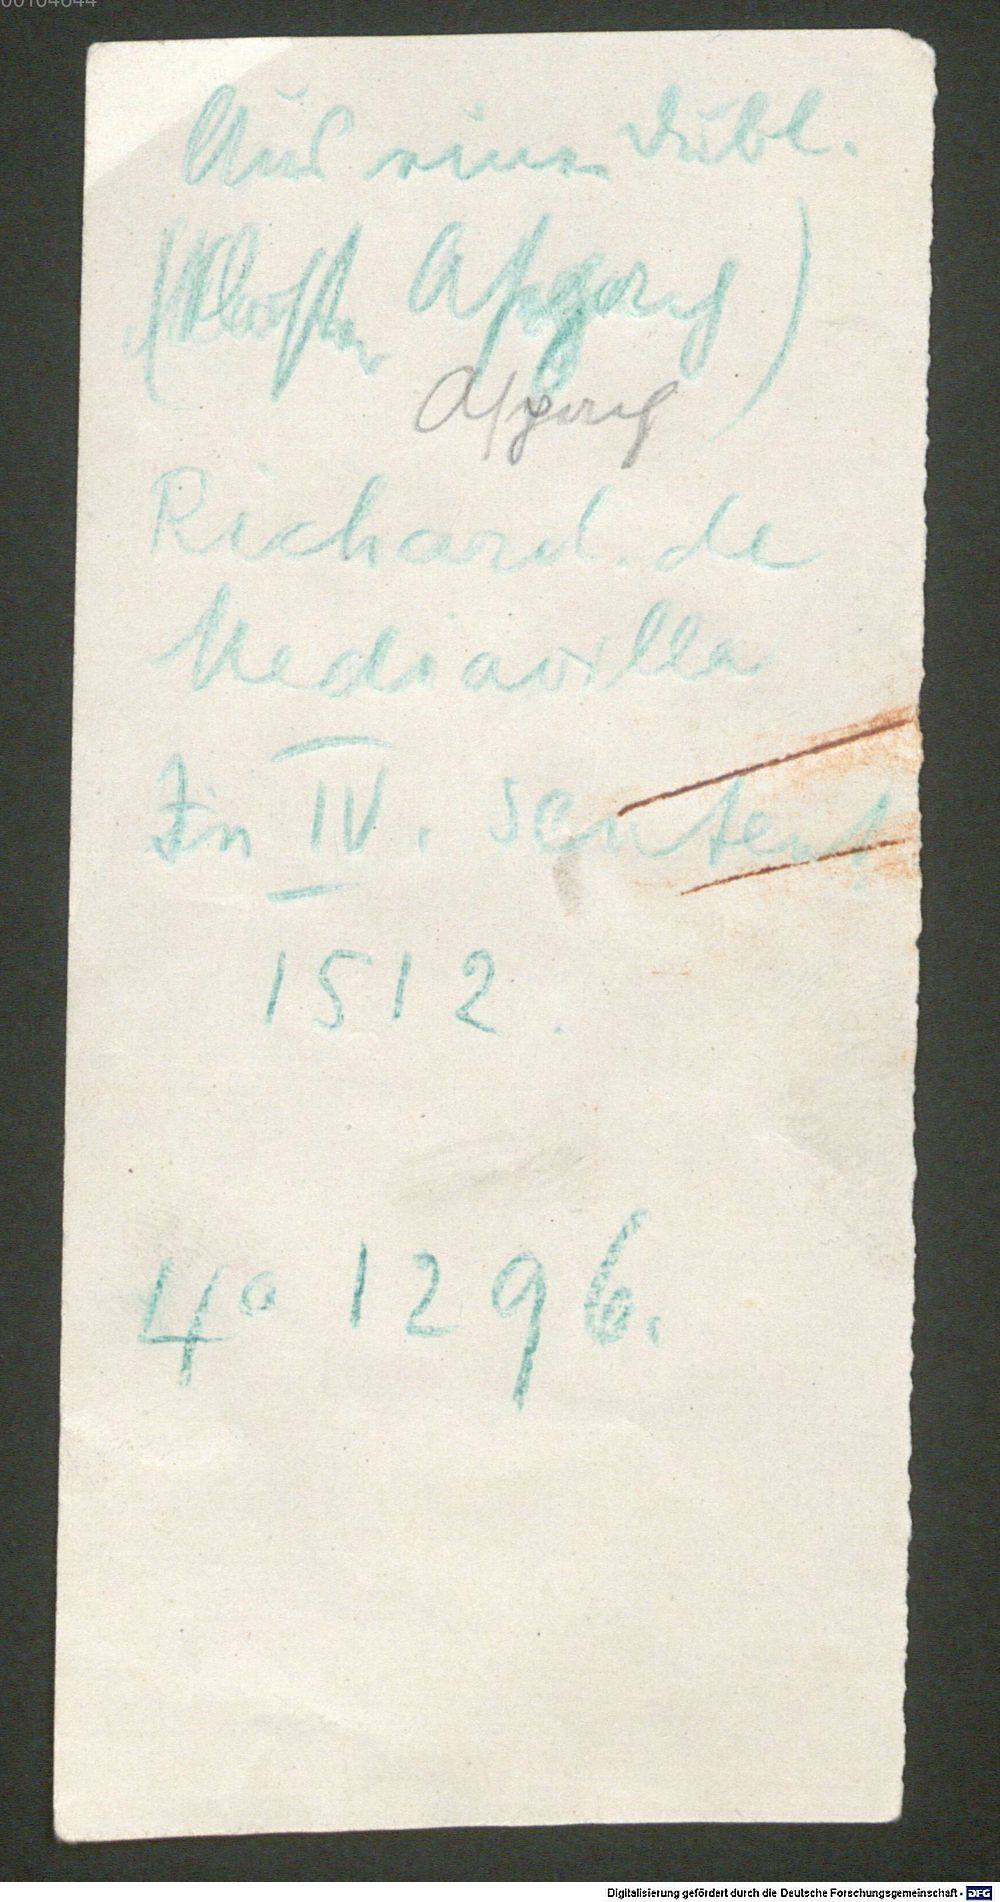 00104644
Aus einer Dubl.
(Kloster Aspach)
Aspach
Richard. de
Mediavilla
In IV. Sentent.
1512.
4° 1296.
Digitalisierung gefördert durch die Deutsche Forschungsgemeinschaft - DFG